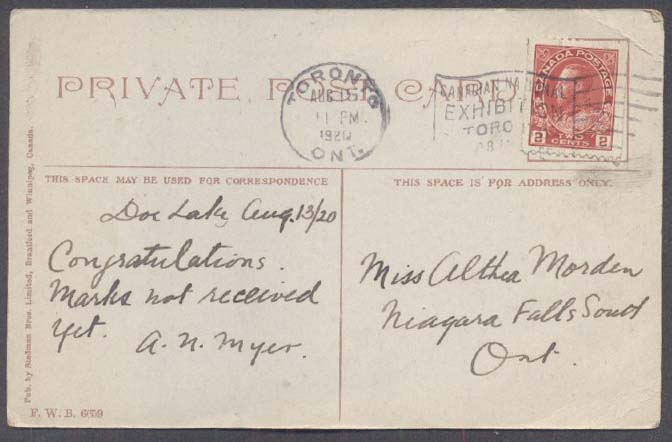 PRIVATE POST CARD
TORONTO
AUG 15
11 PM
1920
ONT.
CANADIAN NA
EXHIBIT
TORO
CANADA POSTAGE
2 TWO CENTS 2
THIS SPACE MAY BE USED FOR CORRESPONDENCE
THIS SPACE IS FOR ADDRESS ONLY.
Doe Lake, Aug. 13/20
Congratulations.
Marks not received
yet.
A. N. Myer.
Miss Althea Morden
Niagara Falls South
Ont.
Pub. by Stedman Bros. Limited, Brantford and Winnipeg, Canada.
F. W. B. 6659